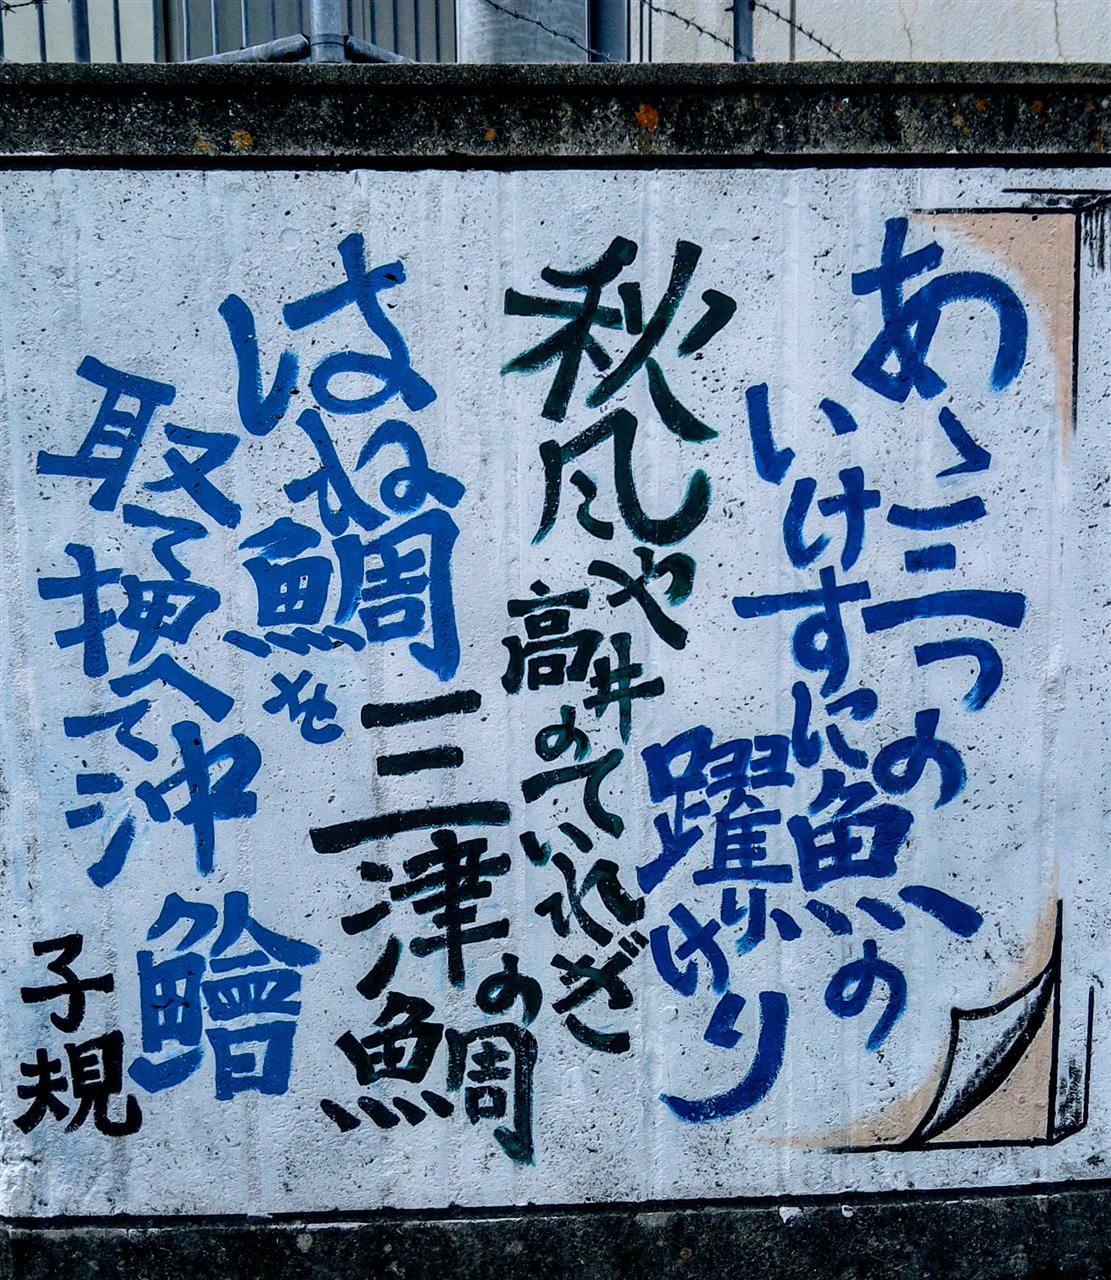 あゝ三つの
いけすに魚の
躍りけり
秋風や
高井のていれぎ
三津の鯛
はね鯛を
取て押へて沖鱠
子規